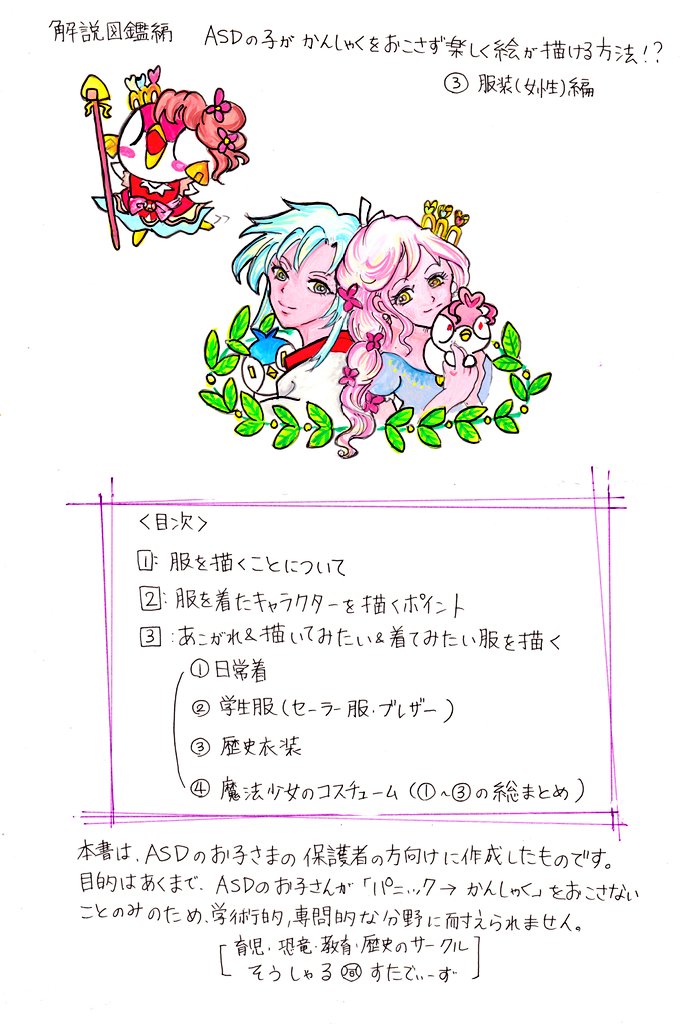 解説図鑑編 ASDの子がかんしゃくをおこさず楽しく絵が描ける方法!?
③ 服装(女性)編
<目次>
1: 服を描くことについて
2: 服を着たキャラクターを描くポイント
3: あこがれ&描いてみたい&着てみたい服を描く
① 日常着
② 学生服(セーラー服・ブレザー)
③ 歴史衣装
④ 魔法少女のコスチューム(①~③の総まとめ)
本書は、ASDのお子さまの保護者の方向けに作成したものです。
目的はあくまで、ASDのお子さんが「パニック→かんしゃく」をおこさない
ことのみのため、学術的,専問的な分野に耐えられません。
[育児・恐竜・教育・歴史のサークル
そうしゃる すたでぃーず]